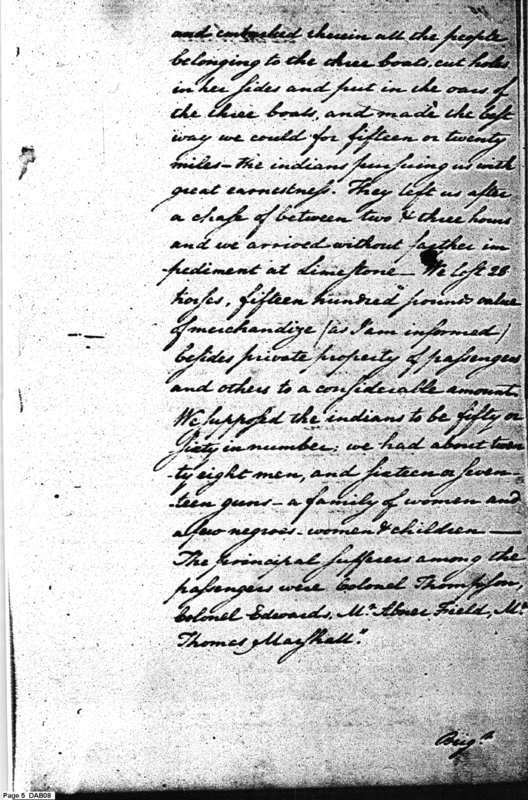 and embarked therein all the people
belonging to the three boats, cut holes
in her sides and put in the oars of
the three boats, and made the best
way we could for fifteen or twenty
miles — the indians pursuing us with
great earnestness. They left us after
a chase of between two & three hours
and we arrived without farther im
pediment at Limestone — We lost 28
horses, fifteen hundred pounds value
of merchandize (as I am informed)
besides private property of passengers
and others to a considerable amount.
We supposed the indians to be fifty or
sixty in number; we had about twen
-ty eight men, and sixteen or seven-
-teen guns — a family of women and
a few negroes — women & children —
The principal sufferers among the
passengers were Colonel Thompson,
Colonel Edwards, Mr. Abner Field, Mr.
Thomas Marshall."
Brigr
Page 5 DAB08